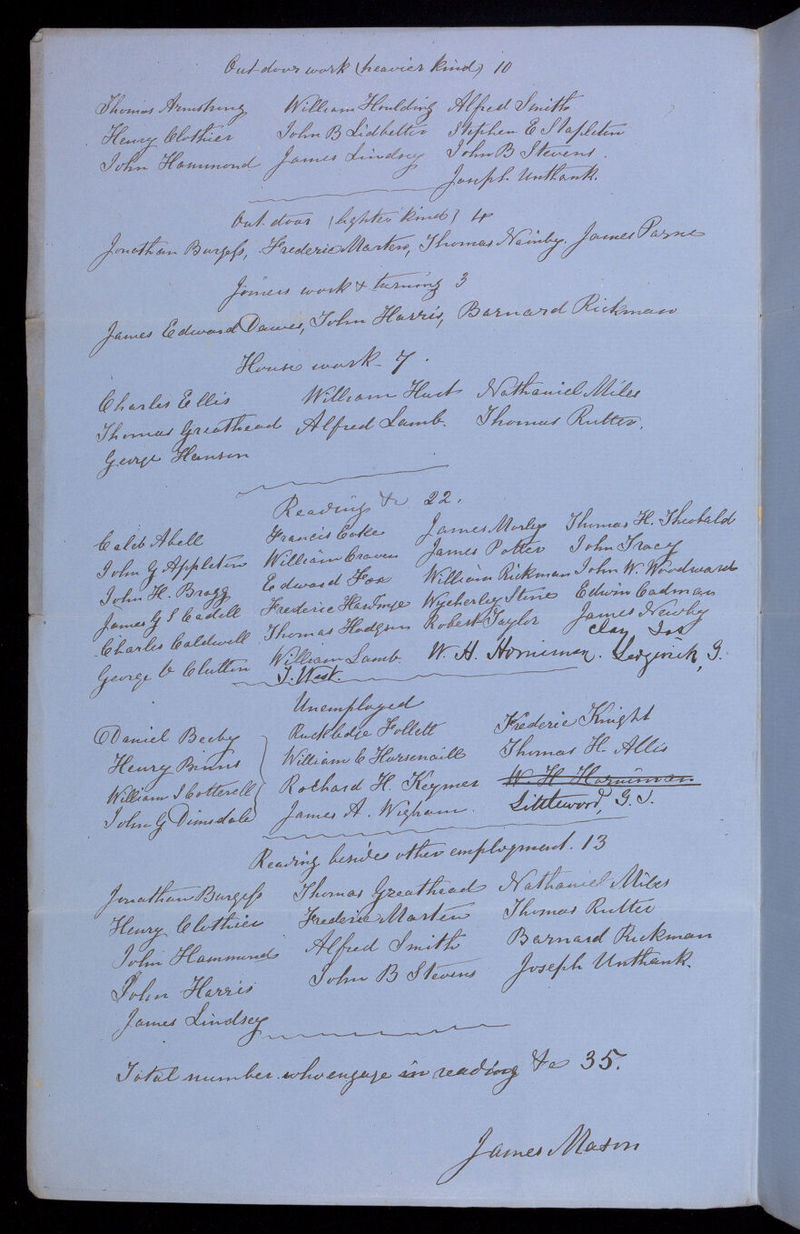 Out-doors work (heavier kind) 10
Thomas Armstrong William Houlding Alfred Smith
Henry Clothier John B Lidbetter Stephen E Stapleton
John Hammond James Lindsey John B Stevens.
Joseph Unthank.
Out-door (lighter kind) 4
Jonathan Burgess, Frederic Marten, Thomas Nainby. James Payne
Joiners work & turning 3
James Edward Dawes, John Harris, Barnard Rickman
House work - 7.
Charles Ellis William Hust Nathaniel Miles
Thomas Greathead Alfred Lamb. Thomas Rutter.
George Hanson
Reading &c 22.
Caleb Abell Francis Coke James Morley Thomas H. Theobald
John G Appleton William Craven James Potter John Tracey
John H. Bragg Edward Fox William Rickman John W. Woodward
James G S Cadell Frederic Wycherley Stine Edwin Cadman
Charles Caldwell Thomas Hodgson Robert Taylor James Newby
George C Clutton William Lamb. W. H. Horniman. Clay Jas
T. West. Sedgwick, G.
Unemployed
Daniel Beeby Ruckladie Follett Frederic Knight
Henry Binns William C Horsenaill Thomas H. Allis
William S Cotterell Rochard H. Keymer W H Horniman
John G Dimsdale James A. Wigham. Littlewood, G. S.
Reading besides other employment. 13
Jonathan Burgess Thomas Greathead Nathaniel Miles
Henry Clothier Frederic Marten Thomas Rutter
John Hammond Alfred Smith Barnard Rickman
John Harris John B Stevens Joseph Unthank.
James Lindsey
Total number who engage in reading &c 35.
James Mason